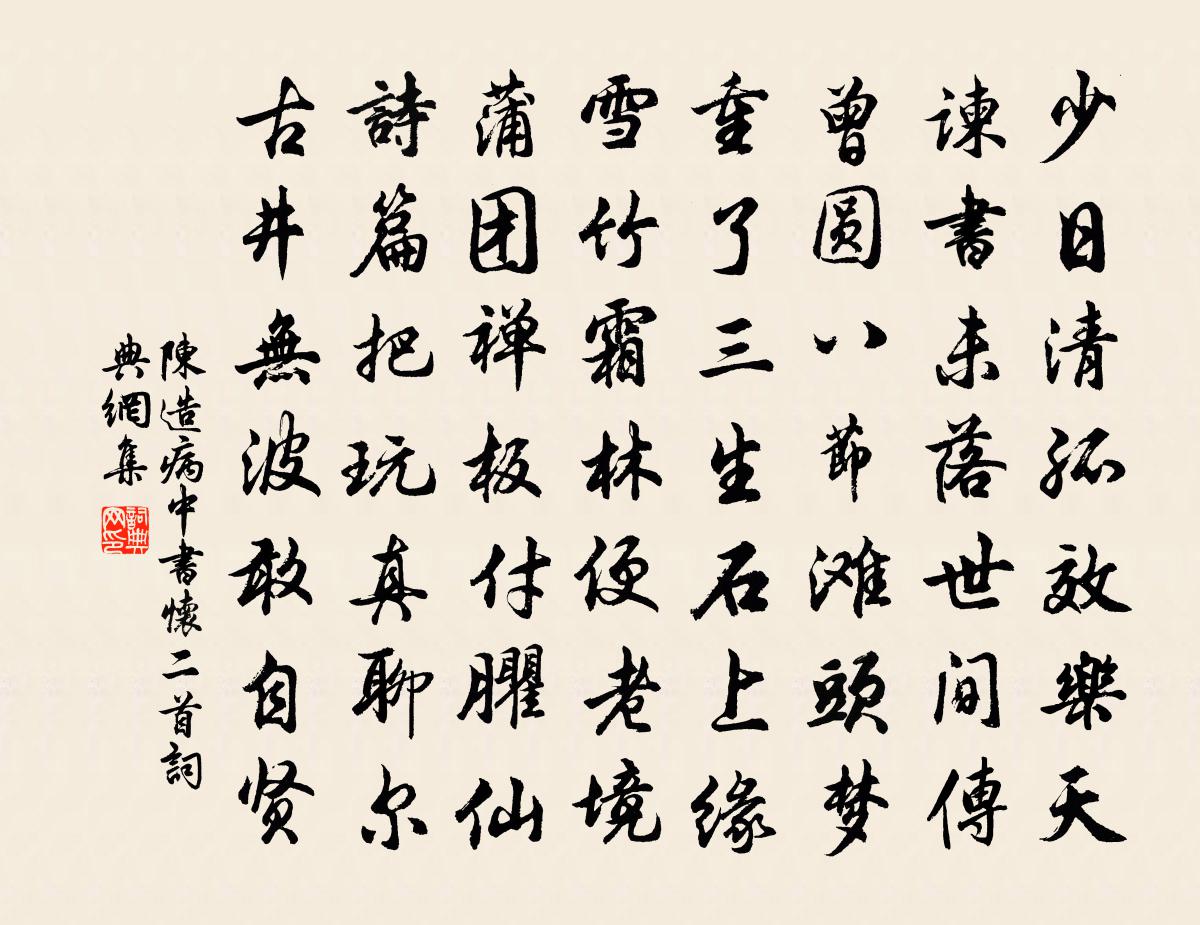 少日清孤效樂天
諫書未落世间傳
曾圆八節滩頭梦
重了三生石上緣
雪竹霜林便老境
蒲团禅板付臞仙
詩篇把玩真聊尔
古井無波敢自贤
陳造病中書懷二首詞
典網集
詞典网印